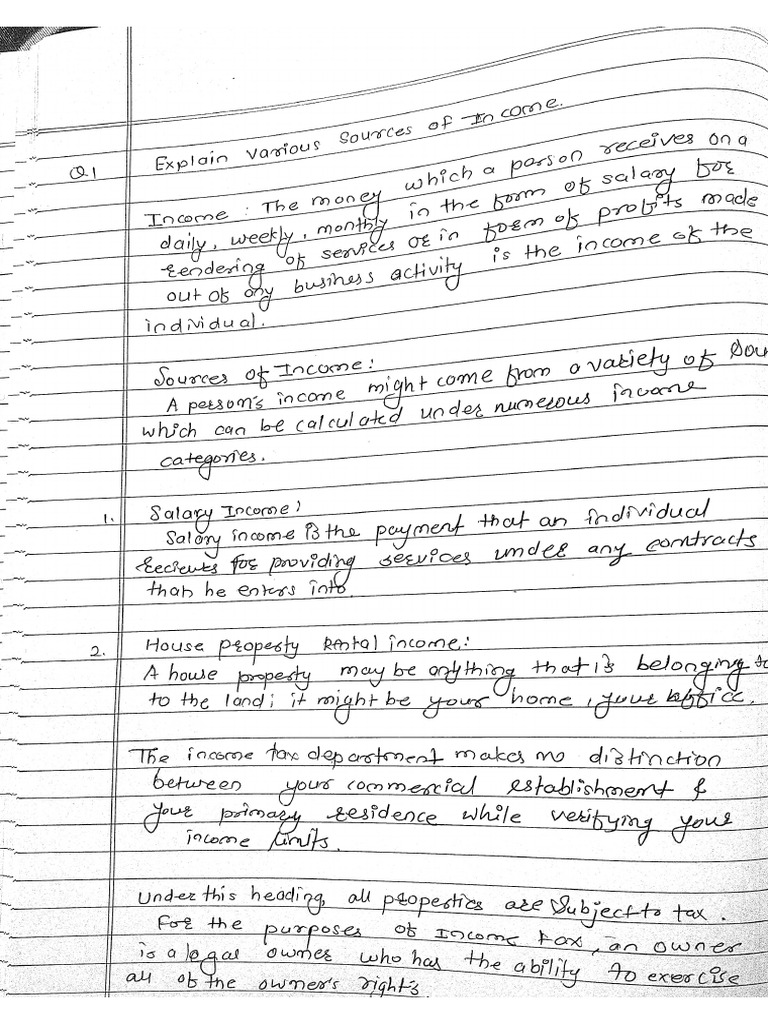 Q1 Explain Various Sources of Income.
Income : The money which a person receives on a
daily, weekly, monthly in the form of salary for
rendering of services or in form of profits made
out of any business activity is the income of the
individual.
Sources of Income :
A person's income might come from a variety of Sou
which can be calculated under numerous income
categories.
1. Salary Income :
Salary income is the payment that an individual
for providing services under any contracts
that he enters into.
2. House property Rental income :
A house property may be anything that is belonging to
to the land ; it might be your home , your office.
The income tax department makes no distinction
between your commercial establishment &
your primary residence while verifying your
income limits.
Under this heading, all properties are Subject to tax .
For the purposes of Income tax , an owner
is a legal owner who has the ability to exercise
all of the owner's rights.